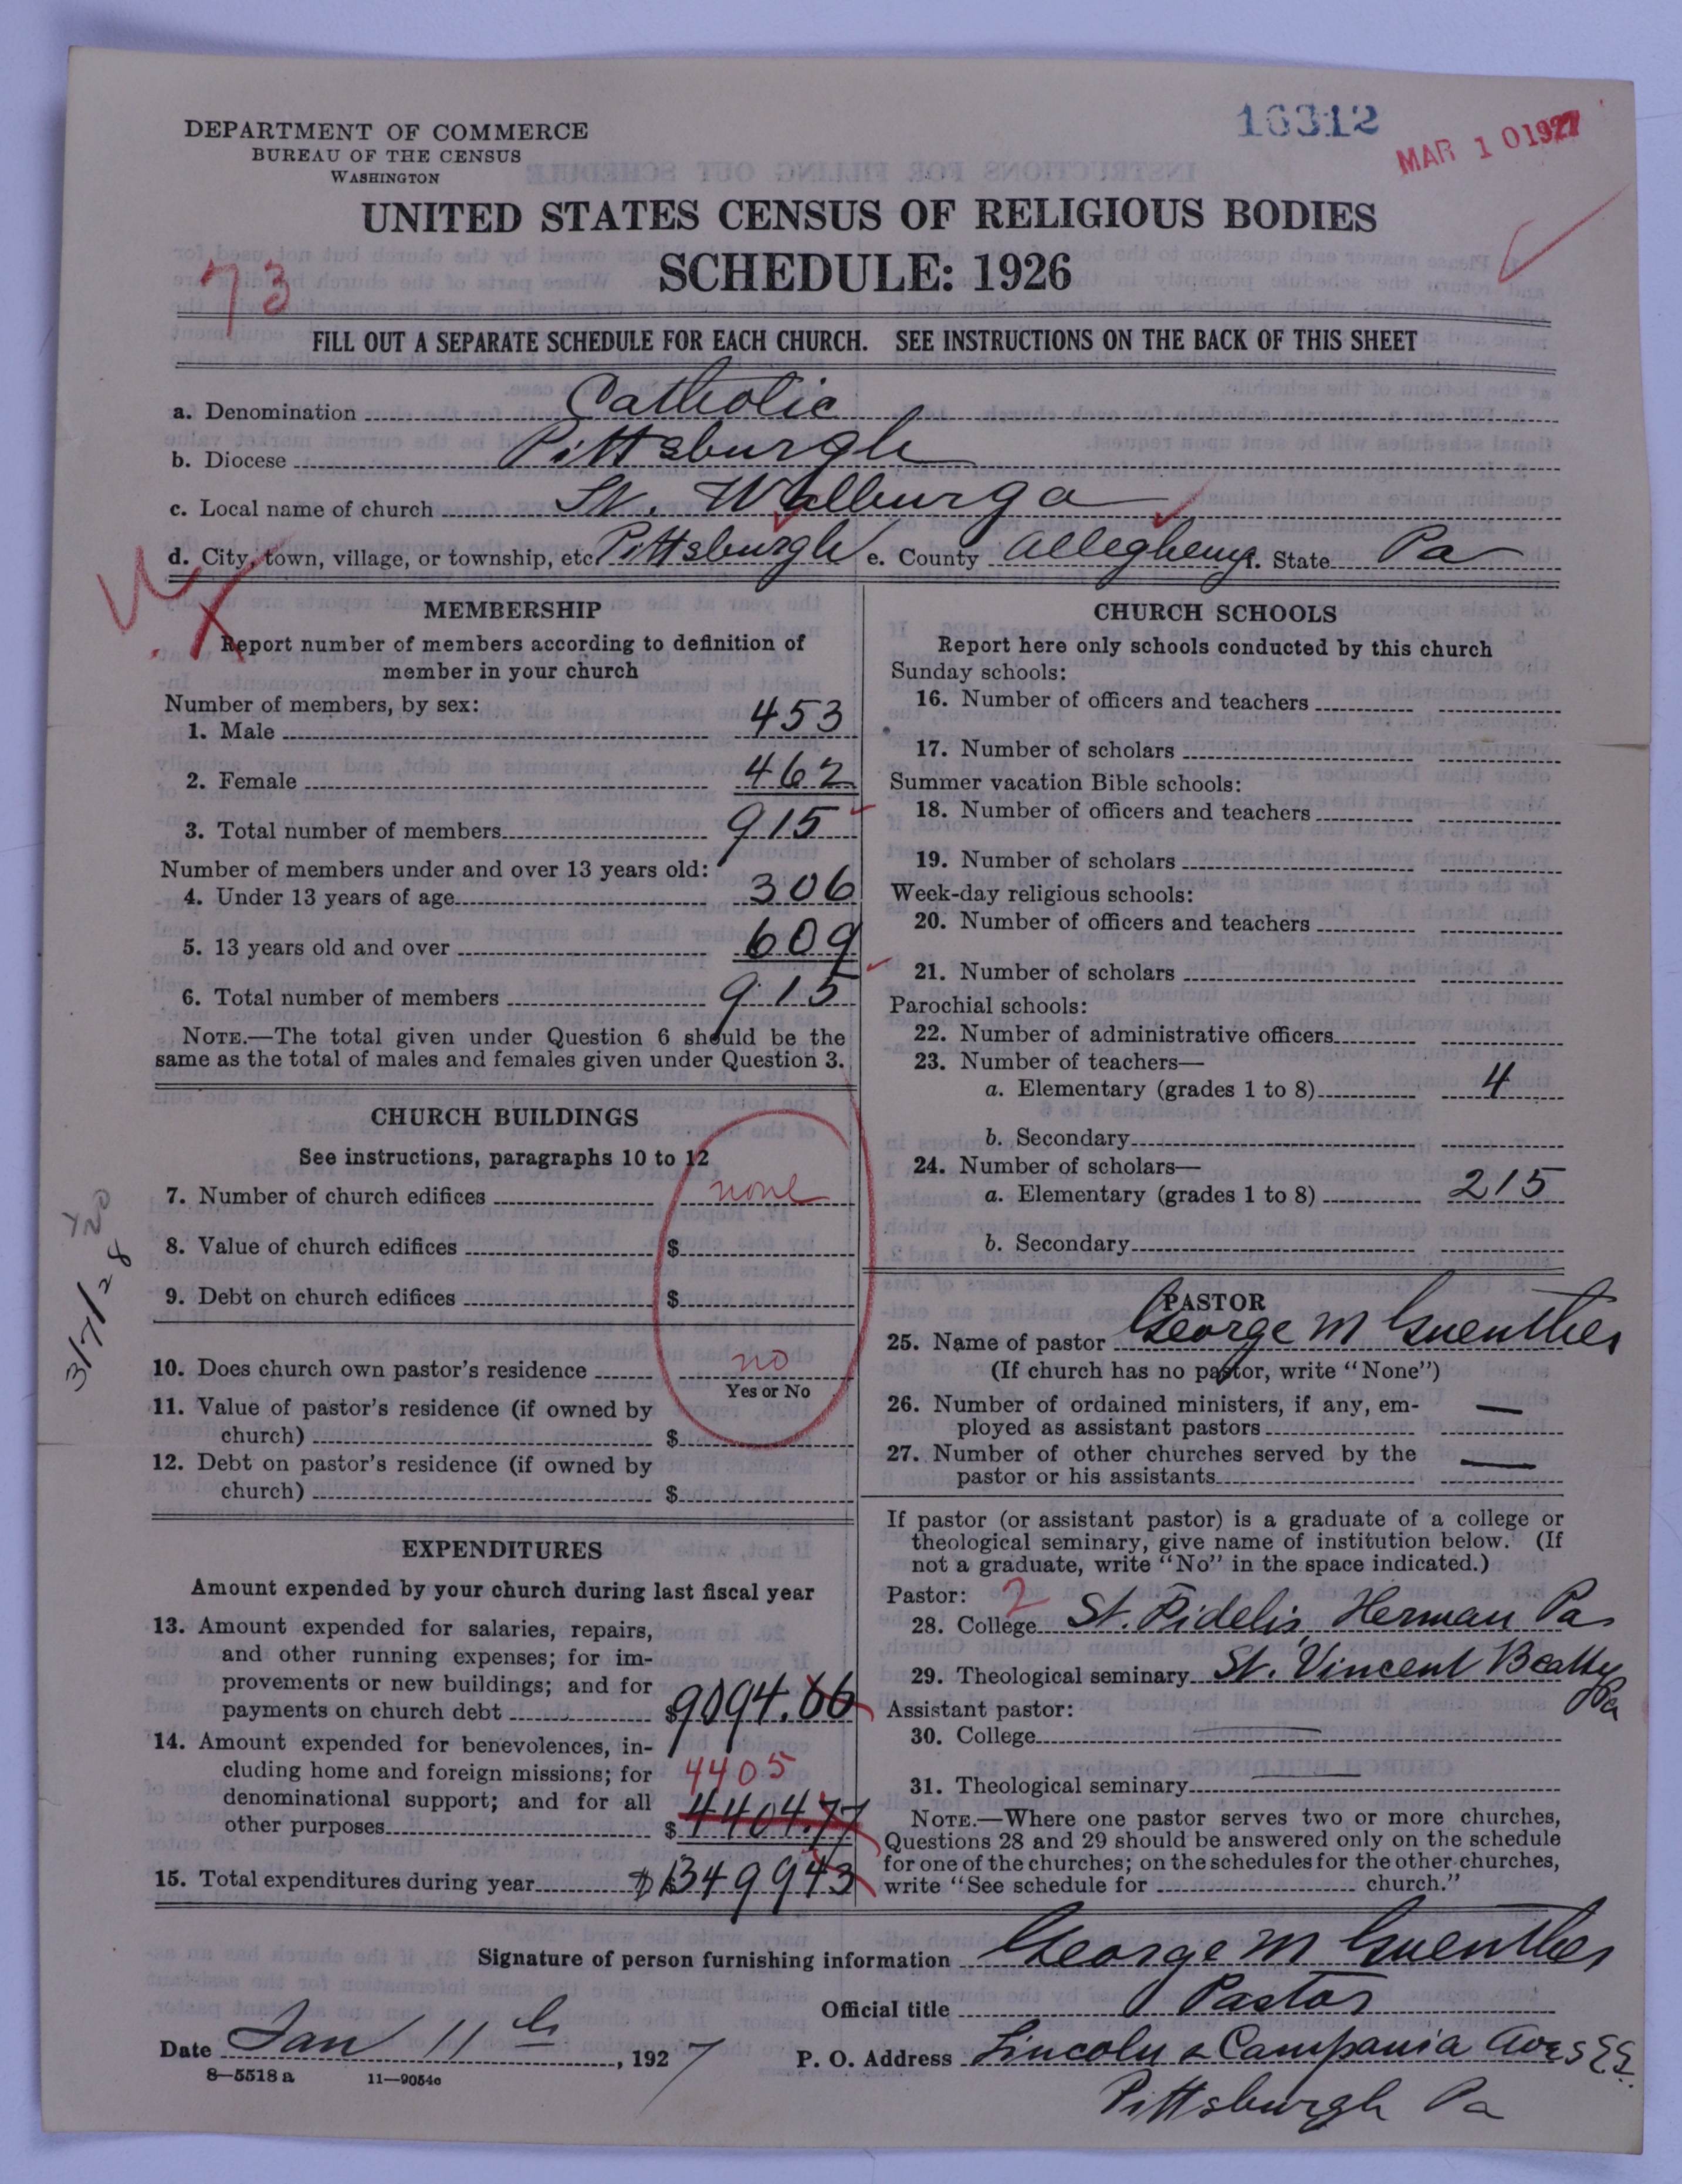 16312
MAR 10 1927
DEPARTMENT OF COMMERCE
BUREAU OF THE CENSUS
WASHINGTON
UNITED STATES CENSUS OF RELIGIOUS BODIES
SCHEDULE: 1926
73
FILL OUT A SEPARATE SCHEDULE FOR EACH CHURCH. SEE INSTRUCTIONS ON THE BACK OF THIS SHEET
a. Denomination Catholic
b. Diocese Pittsburgh
c. Local name of church St. Walburga
d. City, town, village, or township, etc. Pittsburgh e. County Allegheny f. State Pa
MEMBERSHIP
Report number of members according to definition of
member in your church
Number of members, by sex:
1. Male 453
2. Female 462
3. Total number of members 915
Number of members under and over 13 years old:
4. Under 13 years of age 306
5. 13 years old and over 609
6. Total number of members 915
NOTE.—The total given under Question 6 should be the
same as the total of males and females given under Question 3.
CHURCH BUILDINGS
See instructions, paragraphs 10 to 12
7. Number of church edifices none
8. Value of church edifices $
9. Debt on church edifices $
10. Does church own pastor's residence no
Yes or No
11. Value of pastor's residence (if owned by
church) $
12. Debt on pastor's residence (if owned by
church) $
3/7/28
EXPENDITURES
Amount expended by your church during last fiscal year
13. Amount expended for salaries, repairs,
and other running expenses; for im-
provements or new buildings; and for
payments on church debt $9094.66
14. Amount expended for benevolences, in-
cluding home and foreign missions; for 4405
denominational support; and for all
other purposes $4404.77
15. Total expenditures during year $13499 43
CHURCH SCHOOLS
Report here only schools conducted by this church
Sunday schools:
16. Number of officers and teachers
17. Number of scholars
Summer vacation Bible schools:
18. Number of officers and teachers
19. Number of scholars
Week-day religious schools:
20. Number of officers and teachers
21. Number of scholars
Parochial schools:
22. Number of administrative officers
23. Number of teachers—
a. Elementary (grades 1 to 8) 4
b. Secondary
24. Number of scholars—
a. Elementary (grades 1 to 8) 215
b. Secondary
PASTOR
25. Name of pastor George M Guenther
(If church has no pastor, write "None")
26. Number of ordained ministers, if any, em-
ployed as assistant pastors —
27. Number of other churches served by the
pastor or his assistants —
If pastor (or assistant pastor) is a graduate of a college or
theological seminary, give name of institution below. (If
not a graduate, write "No" in the space indicated.)
Pastor: 2
28. College St. Fidelis, Herman Pa
29. Theological seminary St. Vincent Beatty
Pa
Assistant pastor:
30. College —
31. Theological seminary —
NOTE.—Where one pastor serves two or more churches,
Questions 28 and 29 should be answered only on the schedule
for one of the churches; on the schedules for the other churches,
write "See schedule for church."
Signature of person furnishing information George M Guenther
Official title Pastor
Date Jan 11th, 1927 P. O. Address Lincoln & Campania Aves E.E.
Pittsburgh Pa
8—5518 a 11—9054c